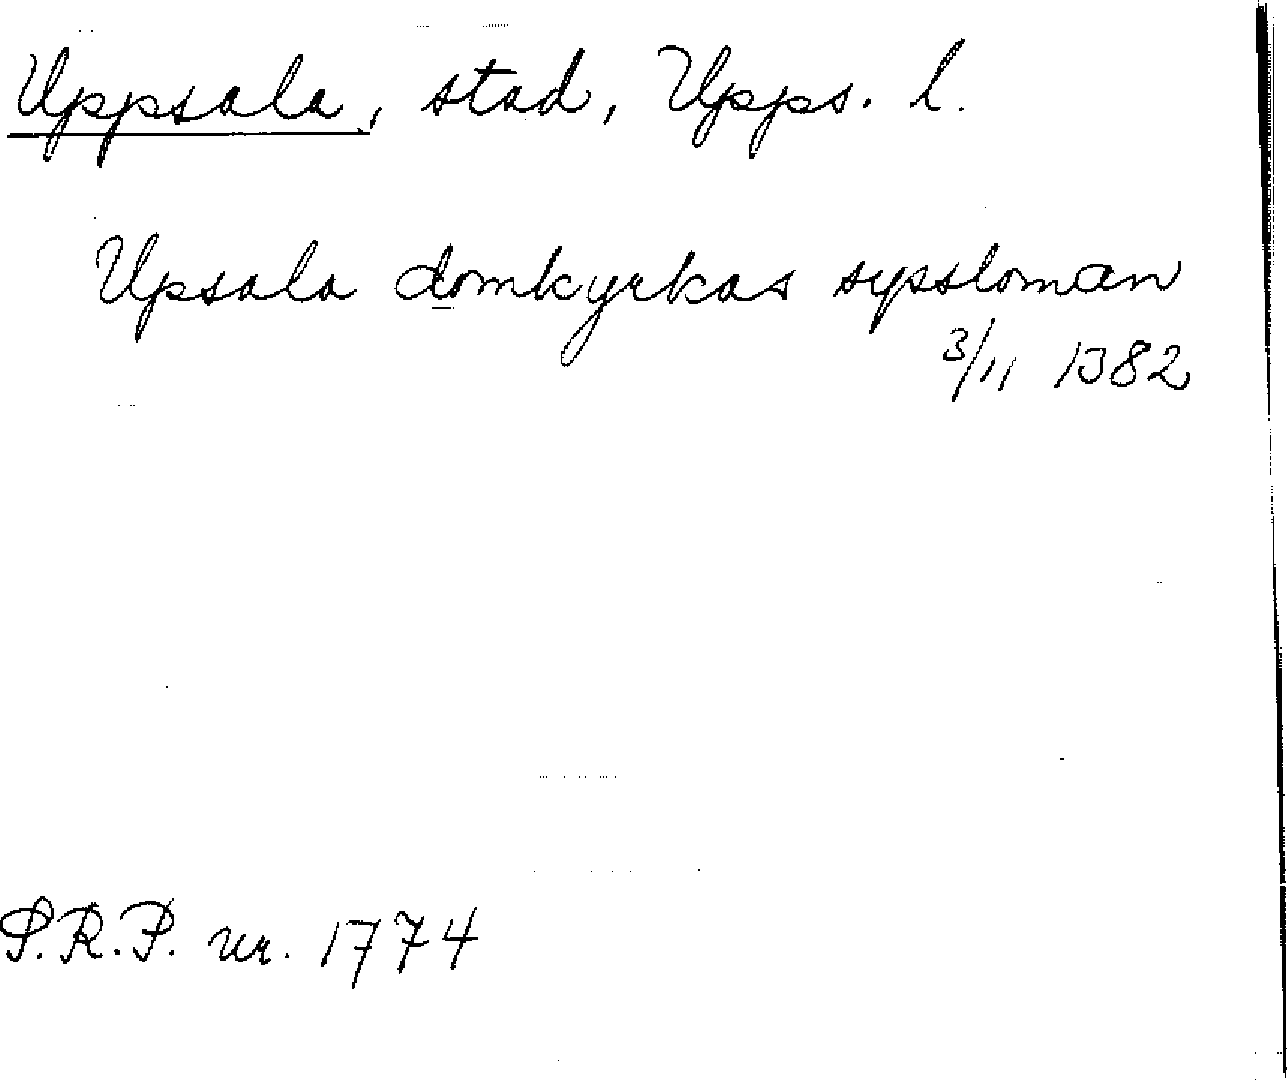 Uppsala, stad, Upps. l.
Upsala domkyrkas syssloman
3/11 1382
S.R.P. nr. 1774